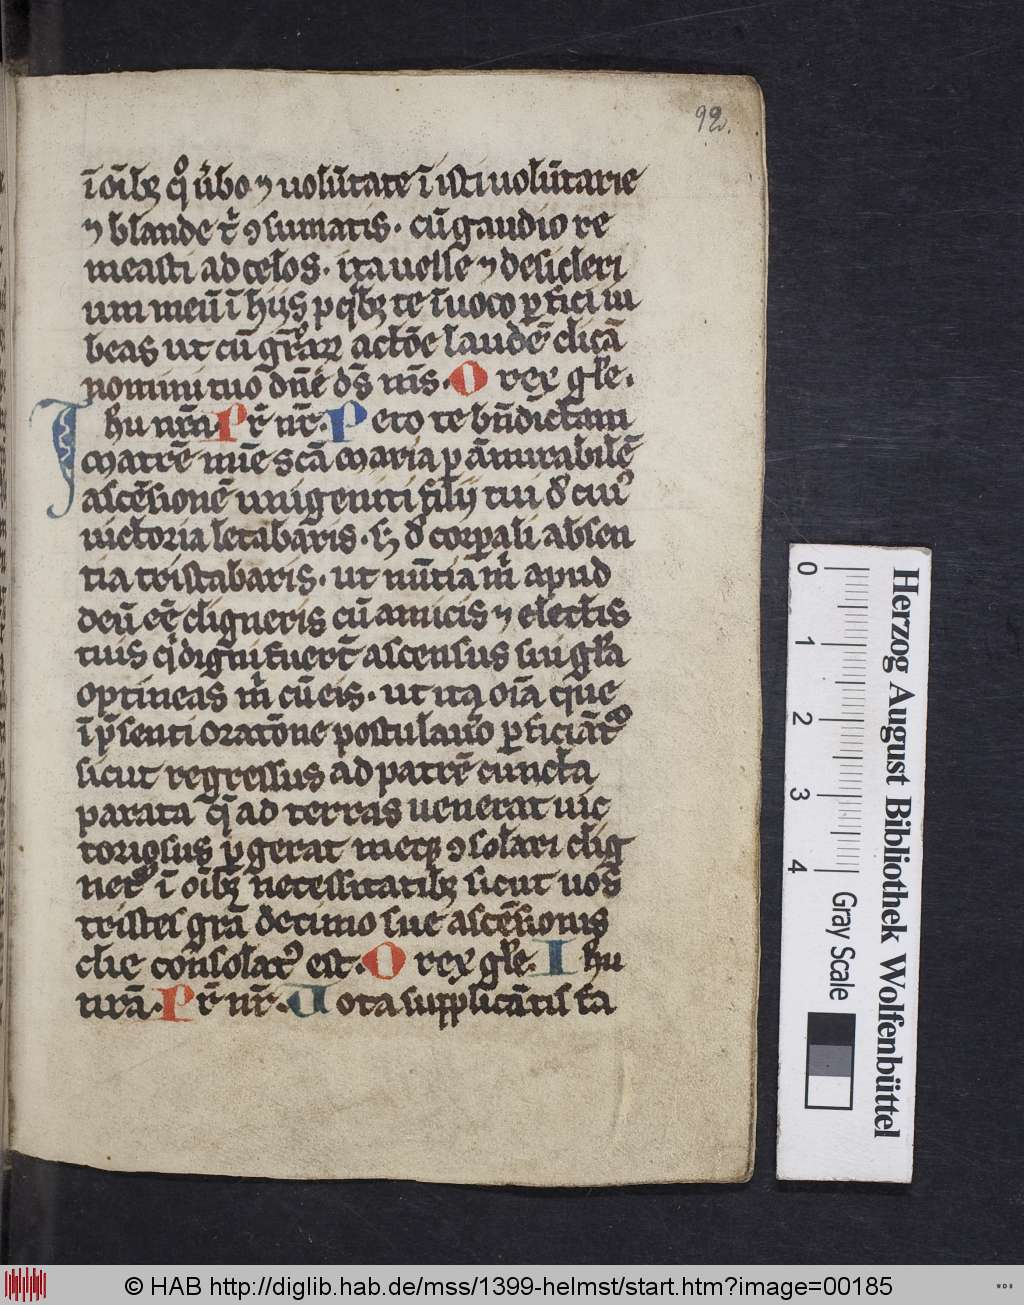 92.
ī oīb⁊ qͦ ůbo ⁊ uolūtate ī isti uolūtarie
⁊ blande t̉ ꝯsumatis · cū gaudio re
measti ad celos · ita uelle ⁊ desideri
um meū ī hijs p qb⁊ te īuoco ꝑfici iu
beas ut cū gr̄aꝝ actōe laudē dicā
nomini tuo dn̄e ds̄ nr̄s · O rex gl̄e ·
Ihu nr̄a · Pr̄ nr̄ · Peto te bn̄dictam
matrē tuā scā maria ꝑ āmirabilē
ascēsionē unigeniti filij tui d̉ cui⁹
uictoria letabaris · ⁊ d̉ corꝑali absen
tia tristabaris · ut nūtia m̉ apud
deū eē digneris cū amicis ⁊ electis
tuis q̉ digni fuer̄t ascensus sui gl̄a
optineas m̉ cū eis · ut itq oīa que
ī p̄senti oratōne postulauō ꝑficiāt᷑
sicut regressus ad patrē cuncta
parata q̄ ad terras uenerat uic
toriosus ꝑgerat meqꝫ ꝯsolari dig
net᷑ ī oīb⁊ necessitatib⁊ sicut uos
tristes gr̄a decimo sue ascēsionis
die consolat⁹ est · O rex gl̄e · Ihu
nr̄a · Pr̄ nr̄ · Uota supplicātis fa
0 1 2 3 4
Gray Scale
Herzog August Bibliothek Wolfenbüttel
© HAB http://diglib.hab.de/mss/1399-helmst/start.htm?image=00185